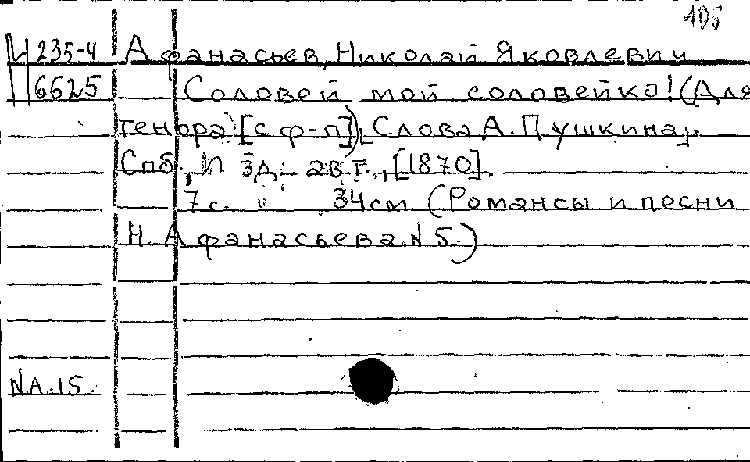 Н 235-4 Афанасьев, Николай Яковлевич
6625 Соловей мой соловейко! (Для
тенора [с ф-п]). Слова А. Пушкина.
Спб., Изд. авт., [1870].
7 с. 34 см (Романсы и песни
Н. Афанасьева N 5.)